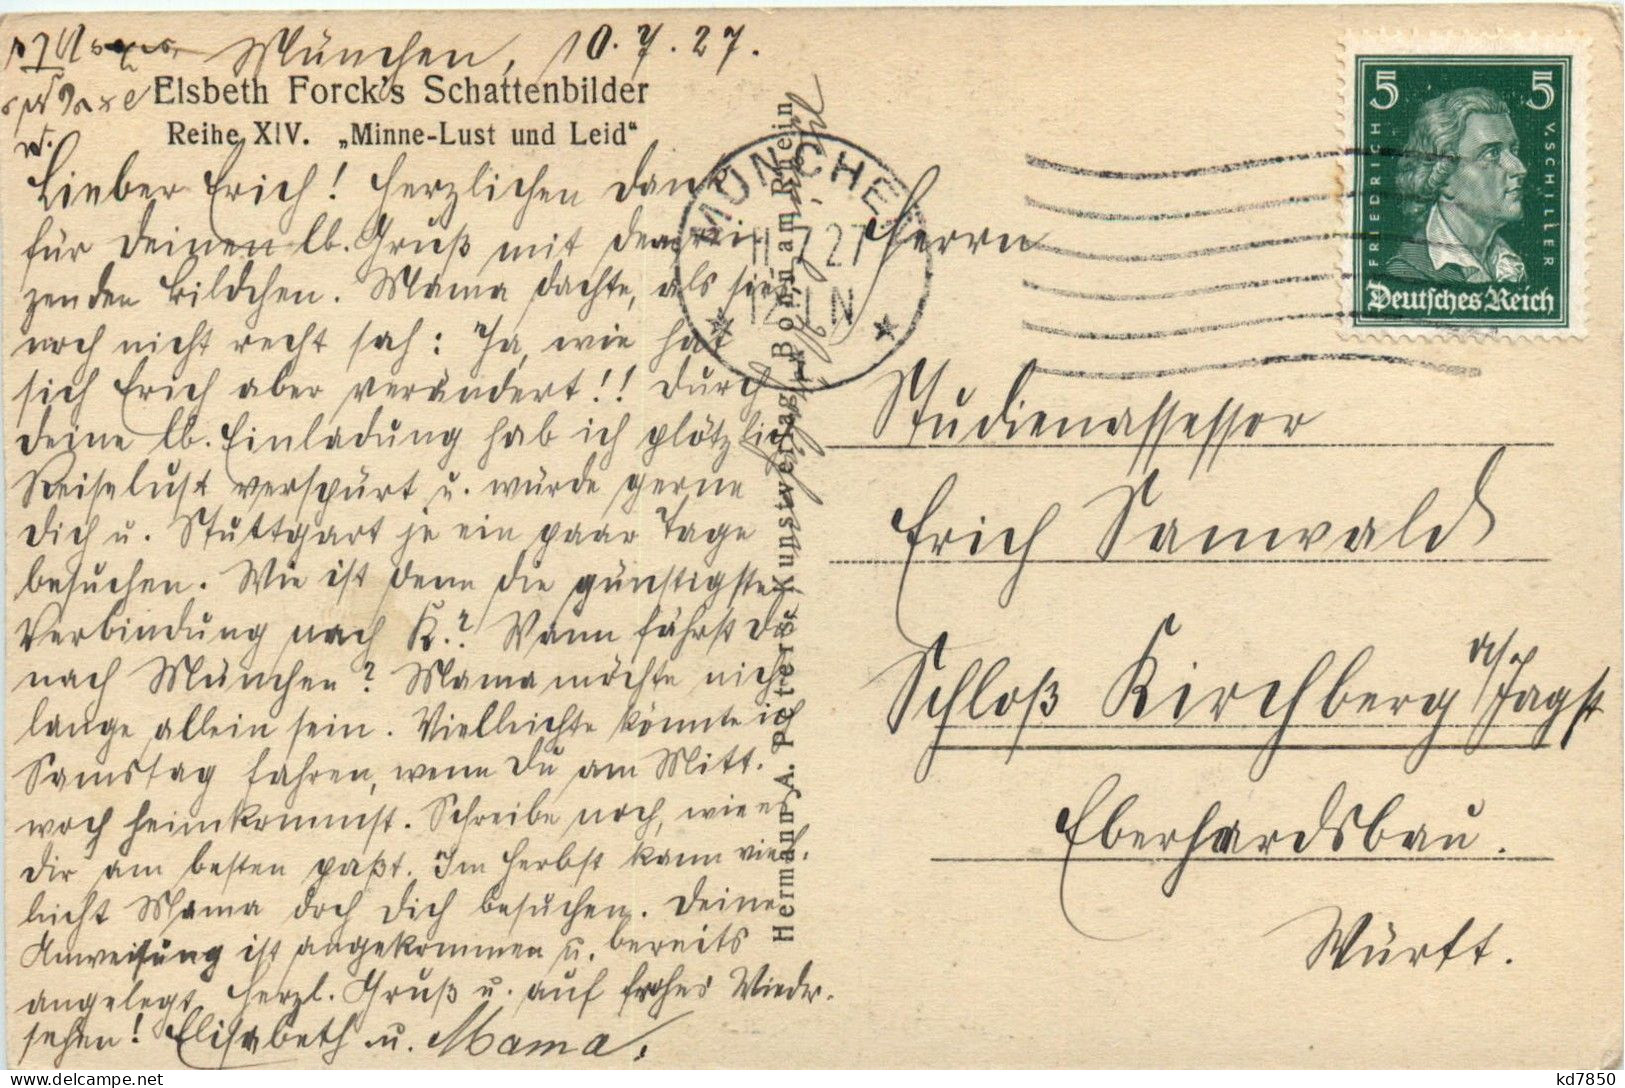 München, 10.7.27.
Elsbeth Forck's Schattenbilder
Reihe XIV. „Minne-Lust und Leid“
Lieber Erich! Herzlichen Dank
für Deinen lb. Gruß mit dem rei-
zenden Bildchen. Mama dachte, als sie's
noch nicht recht sah: "Ja, wie hat
sich Erich aber verändert!! Durch
Deine lb. Einladung hab ich plötzlich
Reiselust verspürt u. würde gerne
Dich u. Stuttgart je ein paar Tage
besuchen. Wie ist denn die günstigste
Verbindung nach K.? Wann fährst Du
nach München? Mama möchte nicht
lange allein sein. Vielleicht könnte ich
Samstag fahren, wenn Du am Mitt-
woch heimkommst. Schreibe noch, wie es
Dir am besten paßt. Im Herbst kann viel-
leicht Mama doch Dich besuchen. Deine
Anweisung ist angekommen u. bereits
angelegt. Herzl. Gruß u. auf frohes Wieder-
sehen! Elisabeth u. Mama.
Hermann A. Peters Kunstverlag Bonn am Rhein
MÜNCHEN
11.7.27
12-1 N
5 5
FRIEDRICH V. SCHILLER
Deutsches Reich
Herrn
Studienassessor
Erich Sanwald
Schloß Kirchberg a/Jagst
Eberhardsbau.
Württ.
kd7850